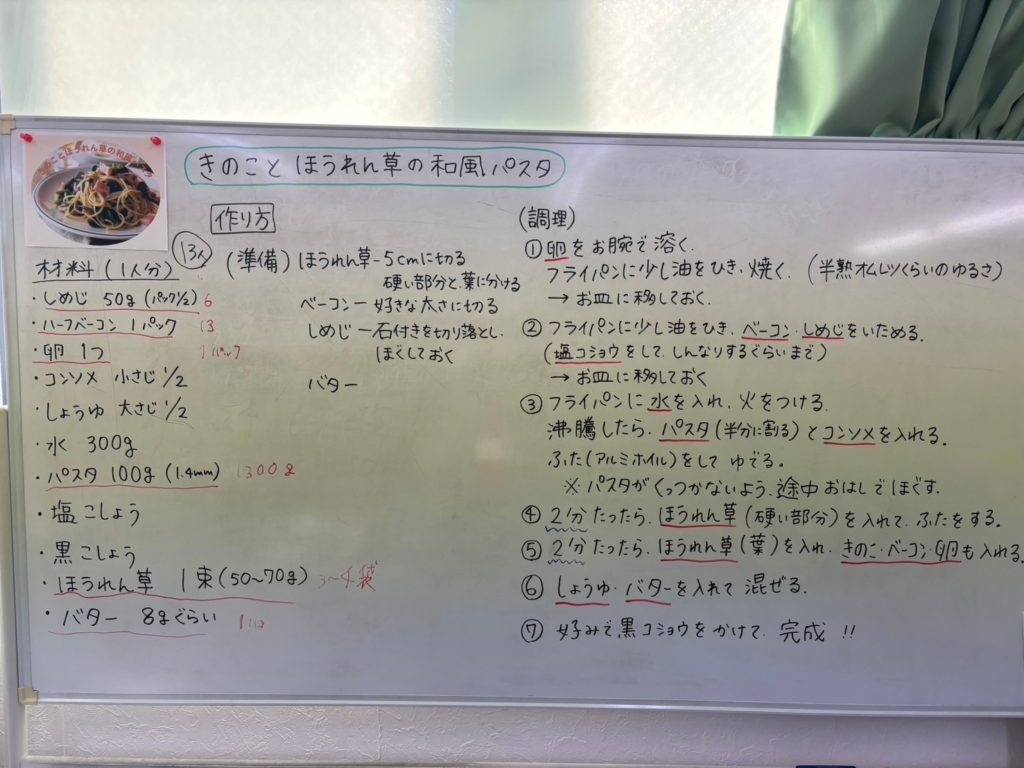 きのことほうれん草の和風パスタ
作り方
13人
材料(1人分)
・しめじ 50g(パック1/2) 6
・ハーフベーコン 1パック 13
・卵 1つ 1パック
・コンソメ 小さじ1/2
・しょうゆ 大さじ1/2
・水 300g
・パスタ 100g(1.4mm) 1300g
・塩こしょう
・黒こしょう
・ほうれん草 1束(50~70g) 3~4袋
・バター 8gぐらい
(準備)ほうれん草-5cmに切る
硬い部分と、葉に分ける
ベーコン―好きな太さに切る
しめじ―石付きを切り落とし、
ほぐしておく
バター
(調理)
①卵をお腕で溶く.
フライパンに少し油をひき、焼く.(半熟オムレツくらいのゆるさ)
→お皿に移しておく.
②フライパンに少し油をひき、ベーコン・しめじをいためる.
(塩コショウをして、しんなりするぐらいまで)
→お皿に移しておく
③フライパンに水を入れ、火をつける.
沸騰したら、パスタ(半分に割る)とコンソメを入れる.
ふた(アルミホイル)をしてゆでる.
※パスタがくっつかないよう、途中おはしでほぐす.
④2分たったら、ほうれん草(硬い部分)を入れて、ふたをする.
⑤2分たったら、ほうれん草(葉)を入れ、きのこ・ベーコン・卵も入れる.
⑥しょうゆ・バターを入れて混ぜる.
⑦好みで黒コショウをかけて、完成!!